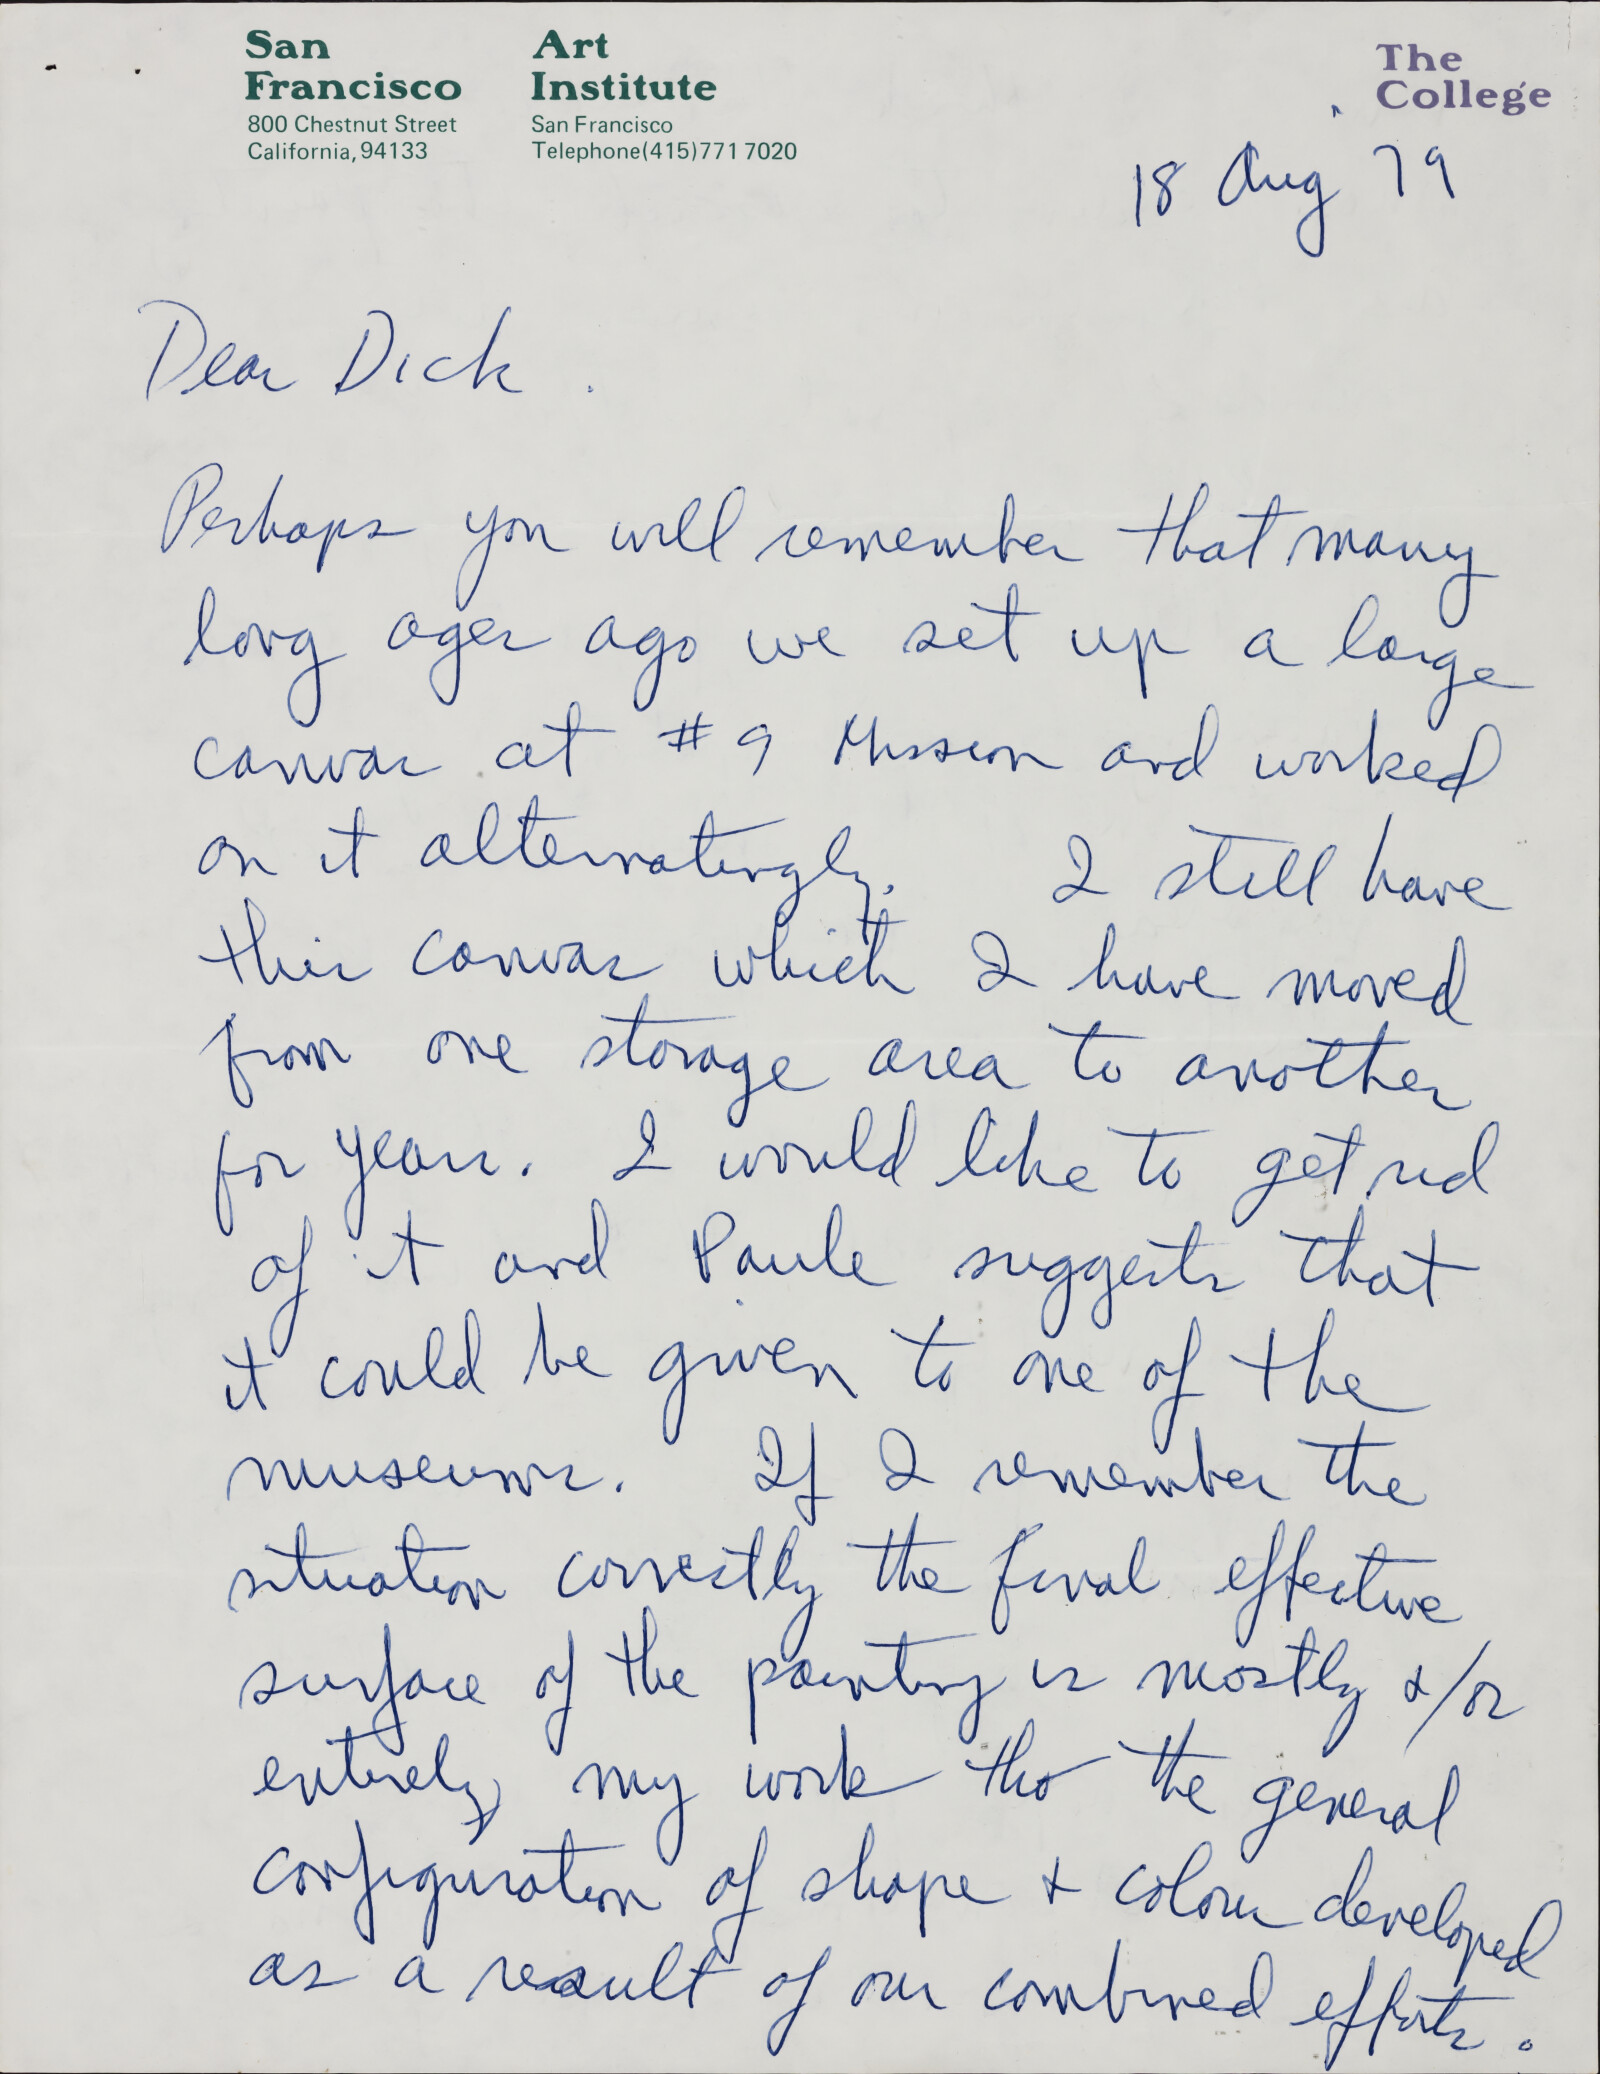 San Francisco Art Institute The College
800 Chestnut Street San Francisco
California, 94133 Telephone (415) 771 7020
18 Aug 79
Dear Dick.
Perhaps you will remember that many
long ages ago we set up a large
canvas at #9 Mission and worked
on it alternatingly. I still have
this canvas which I have moved
from one storage area to another
for years. I would like to get rid
of it and Paule suggests that
it could be given to one of the
museums. If I remember the
situation correctly the final effective
surface of the painting is mostly &/or
entirely my work tho the general
configuration of shape & colour developed
as a result of our combined efforts.